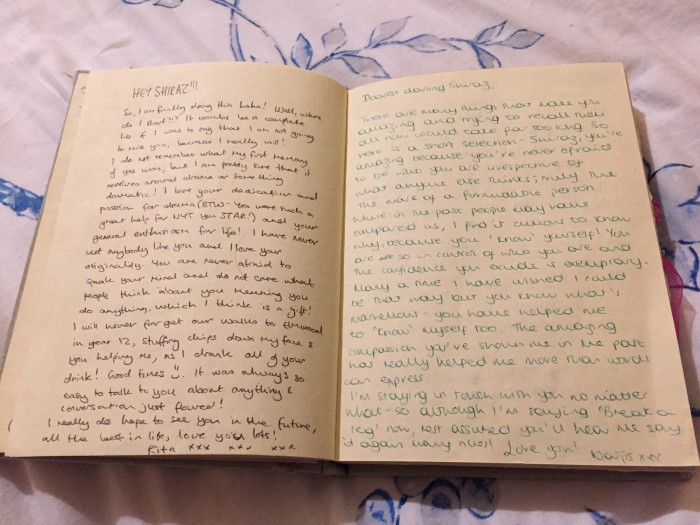 HEY SHIRAZ!!!
So, I am finally doing this haha! Well, where
do I start?!? It would be a complete
lie if I was to say that I am not going
to miss you, because I really will!
I do not remember what my first memory
of you was, but I am pretty sure that it
revolves around drama or something
dramatic! I love your dedication and
passion for drama (BTW- You were such a
great help for NYT you STAR!) and your
general enthusiasm for life! I have never
met anybody like you and I love your
originality. You are never afraid to
speak your mind and do not care what
people think about you meaning you
do anything, which I think is a gift!
I will never forget our walks to
in year 12, stuffing chips down my face &
you helping me, as I drank all of your
drink! Good times. It was always so
easy to talk to you about anything &
conversation just flowed!
I really do hope to see you in the future,
all the best in life, love you lots!
Rita xxx xxx xxx
Dearest darling Shiraz,
There are many things that make you
amazing and trying to recall them
all now would take far too long so,
here is a short selection- Shiraz, you're
amazing because you're never afraid
to be who you are irrespective of
what anyone else thinks; truly the
mark of a formidable person.
While in the past people may have
compared us, I find it curious to know
why, because you 'know' yourself! You
are so in control of who you are and
the confidence you exude is exemplary.
Many a time I have wished I could
be that way but you know what's
marvellous- you have helped me
to "know" myself too. The amazing
compassion you've shown me in the past
has really helped me more than words
can express
I'm staying in touch with you no matter
what- so although I'm saying "Break a
leg" now, rest assured you'll hear me say
it again many times! Love you!
xxx